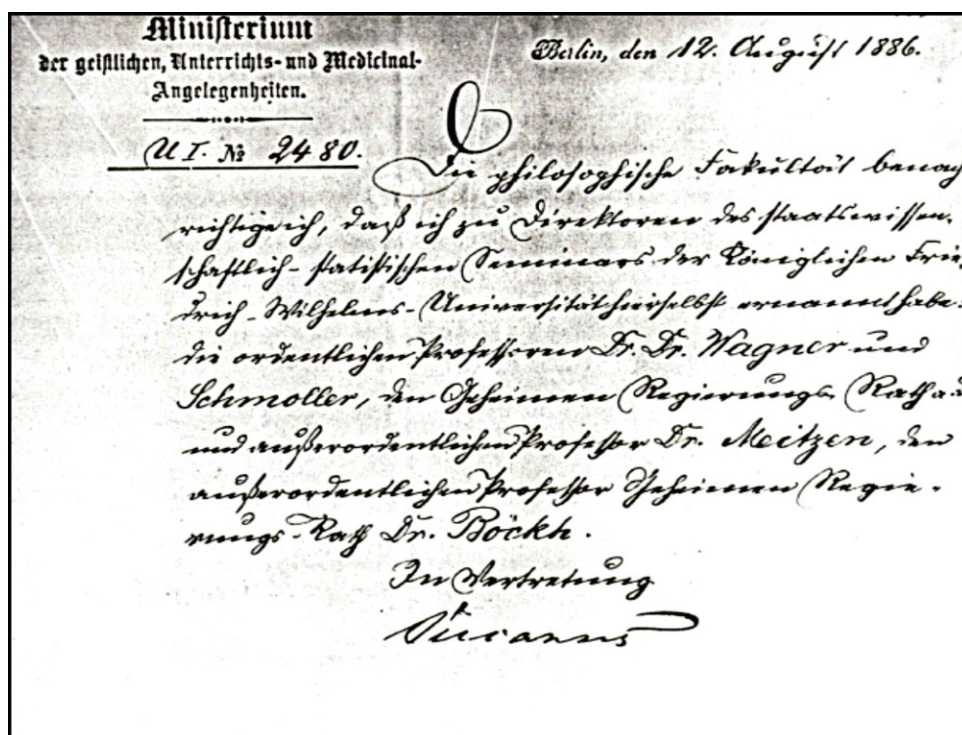 Ministerium
der geistlichen, Unterrichts- und Medicinal-
Angelegenheiten.
U I. № 2480.
Berlin, den 12. August 1886.
Die philosophische Fakultät benach
richtige ich, daß ich zu Direktoren des staatswissen-
schaftlich-statistischen Seminars der Königlichen Frie-
drich-Wilhelms-Universität hierselbst ernannt habe:
die ordentlichen Professoren Dr. Dr. Wagner und
Schmoller, den Geheimen Regierungs-Rath a.D.
und außerordentlichen Professor Dr. Meitzen, den
außerordentlichen Professor Geheimen Regie-
rungs-Rath Dr. Böckh.
In Vertretung
Lucanus